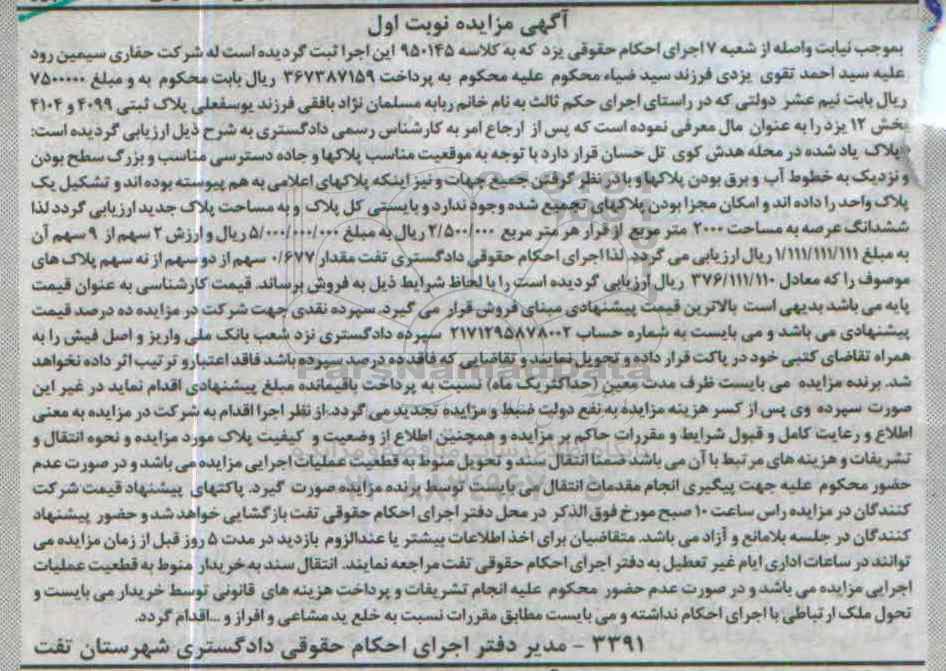 آگهی مزایده نوبت اول
بموجب نیابت واصله از شعبه ۷ اجرای احکام حقوقی یزد که به کلاسه ۹۵۰۱۴۵ این اجرا ثبت گردیده است له شرکت حفاری سیمین رود
علیه سید احمد تقوی یزدی فرزند سید ضیاء محکوم علیه محکوم به پرداخت ۳۶۷۳۸۷۱۵۹ ریال بابت محکوم به و مبلغ ۷۵۰۰۰۰۰
ریال بابت نیم عشر دولتی که در راستای اجرای حکم ثالث به نام خانم ربابه مسلمان نژاد بافقی فرزند یوسفعلی پلاک ثبتی ۴۰۹۹ و ۴۱۰۴
بخش ۱۲ یزد را به عنوان مال معرفی نموده است که پس از ارجاع امر به کارشناس رسمی دادگستری به شرح ذیل ارزیابی گردیده است:
پلاک یاد شده در محله هدش کوی تل حسان قرار دارد با توجه به موقعیت مناسب پلاکها و جاده دسترسی مناسب و بزرگ سطح بودن
و نزدیک به خطوط آب و برق بودن پلاکها و با در نظر گرفتن جمیع جهات و نیز اینکه پلاکهای اعلامی به هم پیوسته بوده اند و تشکیل یک
پلاک واحد را داده اند و امکان مجزا بودن پلاکهای تجمیع شده وجود ندارد و بایستی کل پلاک و به مساحت پلاک جدید ارزیابی گردد لذا
ششدانگ عرصه به مساحت ۲۰۰۰ متر مربع از قرار هر متر مربع ۲/۵۰۰/۰۰۰ ریال به مبلغ ۵/۰۰۰/۰۰۰/۰۰۰ ریال و ارزش ۲ سهم از ۹ سهم آن
به مبلغ ۱/۱۱۱/۱۱۱/۱۱۱ ریال ارزیابی می گردد. لذا اجرای احکام حقوقی دادگستری تفت مقدار ۰/۶۷۷ سهم از دو سهم از نه سهم پلاک های
موصوف را که معادل ۳۷۶/۱۱۱/۱۱۰ ریال ارزیابی گردیده است را با لحاظ شرایط ذیل به فروش برساند. قیمت کارشناسی به عنوان قیمت
پایه می باشد بدیهی است بالاترین قیمت پیشنهادی مبنای فروش قرار می گیرد. سپرده نقدی جهت شرکت در مزایده ده درصد قیمت
پیشنهادی می باشد و می بایست به شماره حساب ۲۱۷۱۲۹۵۸۷۸۰۰۲ سپرده دادگستری نزد شعب بانک ملی واریز و اصل فیش را به
همراه تقاضای کتبی خود در پاکت قرار داده و تحویل نمایند و تقاضایی که فاقد ده درصد سپرده باشد فاقد اعتبار و ترتیب اثر داده نخواهد
شد. برنده مزایده می بایست ظرف مدت معین (حداکثر یک ماه) نسبت به پرداخت باقیمانده مبلغ پیشنهادی اقدام نماید در غیر این
صورت سپرده وی پس از کسر هزینه مزایده به نفع دولت ضبط و مزایده تجدید می گردد. از نظر اجرا اقدام به شرکت در مزایده به معنی
اطلاع و رعایت کامل و قبول شرایط و مقررات حاکم بر مزایده و همچنین اطلاع از وضعیت و کیفیت پلاک مورد مزایده و نحوه انتقال و
تشریفات و هزینه های مرتبط با آن می باشد ضمنا انتقال سند و تحویل منوط به قطعیت عملیات اجرایی مزایده می باشد و در صورت عدم
حضور محکوم علیه جهت پیگیری انجام مقدمات انتقال می بایست توسط برنده مزایده صورت گیرد. پاکتهای پیشنهاد قیمت شرکت
کنندگان در مزایده راس ساعت ۱۰ صبح مورخ فوق الذکر در محل دفتر اجرای احکام حقوقی تفت بازگشایی خواهد شد و حضور پیشنهاد
کنندگان در جلسه بلامانع و آزاد می باشد. متقاضیان برای اخذ اطلاعات بیشتر یا عندالزوم بازدید در مدت ۵ روز قبل از زمان مزایده می
توانند در ساعات اداری ایام غیر تعطیل به دفتر اجرای احکام حقوقی تفت مراجعه نمایند. انتقال سند به خریدار منوط به قطعیت عملیات
اجرایی مزایده می باشد و در صورت عدم حضور محکوم علیه انجام تشریفات و پرداخت هزینه های قانونی توسط خریدار می بایست و
تحول ملک ارتباطی با اجرای احکام نداشته و می بایست مطابق مقررات نسبت به خلع ید مشاعی و افراز و ...اقدام گردد.
۳۳۹۱ - مدیر دفتر اجرای احکام حقوقی دادگستری شهرستان تفت
ParsNamadData